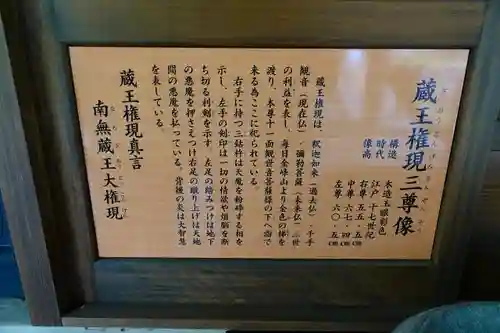 蔵王権現三尊像
ざおうごんげんさんぞんぞう
構造 木造玉眼彩色
時代 江戸 十七世紀
像高 右尊 五五・五㎝
中尊 六七・四㎝
左尊 六〇・五㎝
蔵王権現は、釈迦如来（過去仏）・千手
観音（現在仏）・彌勒菩薩（未来仏）三世
の利益を表し、毎日金峰山より金色の梯を
渡り、本尊十一面観世音菩薩様の下へ詣で
来る為ここに祀られている。
右手に持つ三鈷杵は天魔を粉砕する相を
示し、左手の剣印は一切の情欲や煩悩を断
ち切る利剣を示す。左足の踏みつけは地下
の悪魔を押さえつけ右足の蹴り上げは天地
間の悪魔を払っている。背後の炎は大智慧
を表している。
蔵王権現真言
南無蔵王大権現